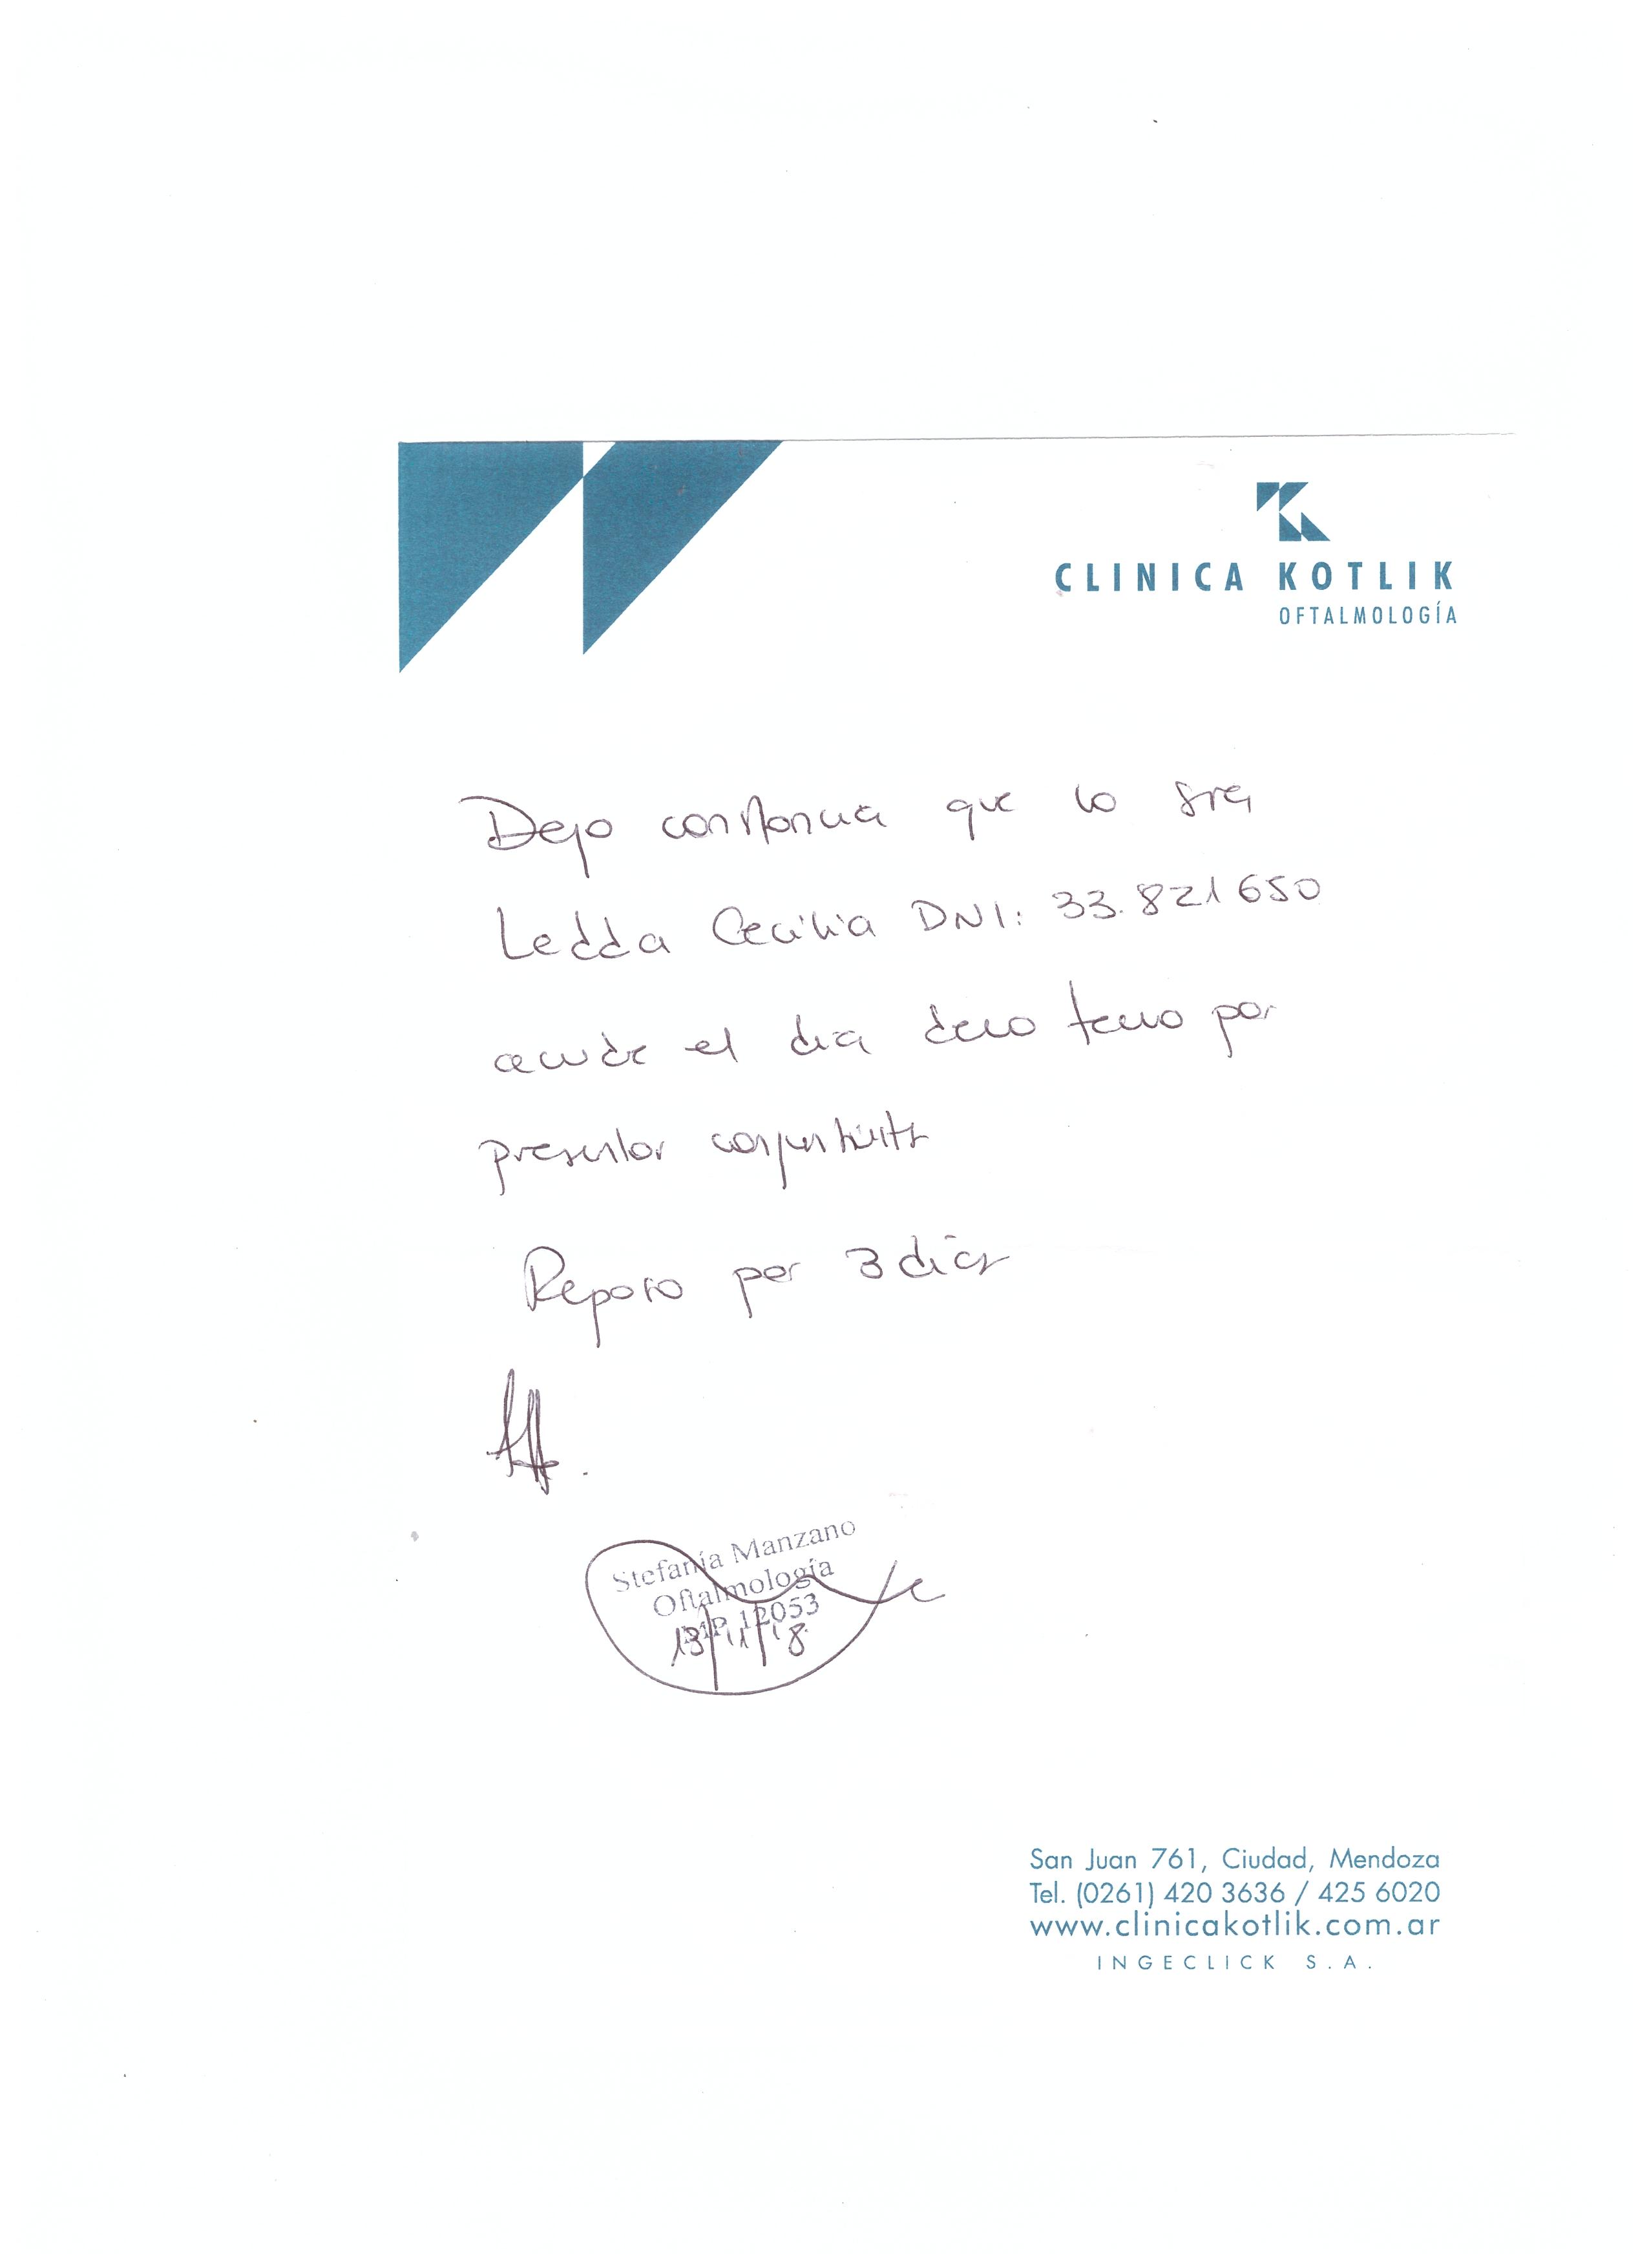 CLINICA KOTLIK
OFTALMOLOGÍA
Dejo constancia que la sra
Ledda Cecilia DNI: 33.821650
acude el dia por
presentar conjuntivitis
Reposo por 3 días
Stefanía Manzano
Oftalmología
MP 12053
13/11/18
San Juan 761, Ciudad, Mendoza
Tel. (0261) 420 3636 / 425 6020
www.clinicakotlik.com.ar
INGECLICK S.A.